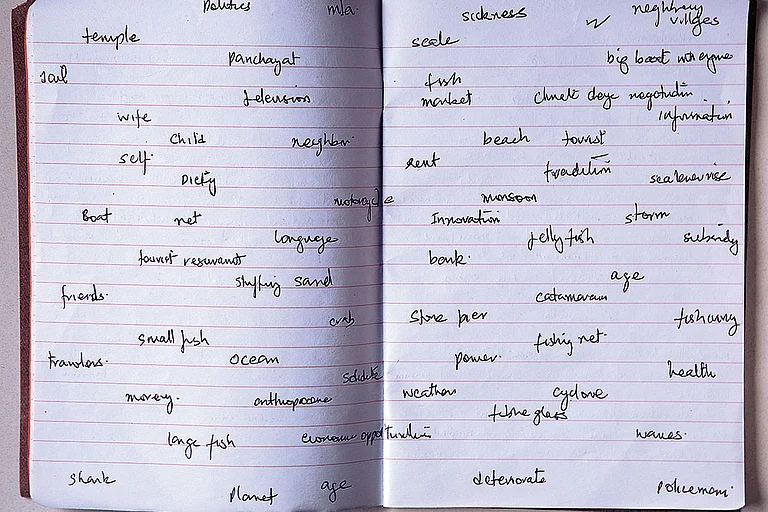 Politics mla.
temple
Panchayat
sail
television
wife
child neighbor.
self.
Diety
motorcycle
Boat net
language
tourist restaurant
shifting sand
friends.
crab
small fish
trawlers. ocean
solidite
money. anthropocene
large fish economic opportunities
shark
Planet age
sickness neghboury
villges
scale
big boat with engine
fish
market climate daye negotiation
information
beach tourist
rent
tradition
sealevel rise
monsoon
Innovation storm
Jelly fish subsidy
bank.
age
catamaran
stone pier fish curry
fishing net.
power.
health
weather cyclone
fibre glass
waves.
deteriorate
Policeman